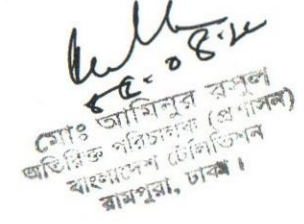 মোঃ আমিনুর রসুল
অতিরিক্ত পরিচালক (প্রশাসন)
বাংলাদেশ টেলিভিশন
রামপুরা, ঢাকা।